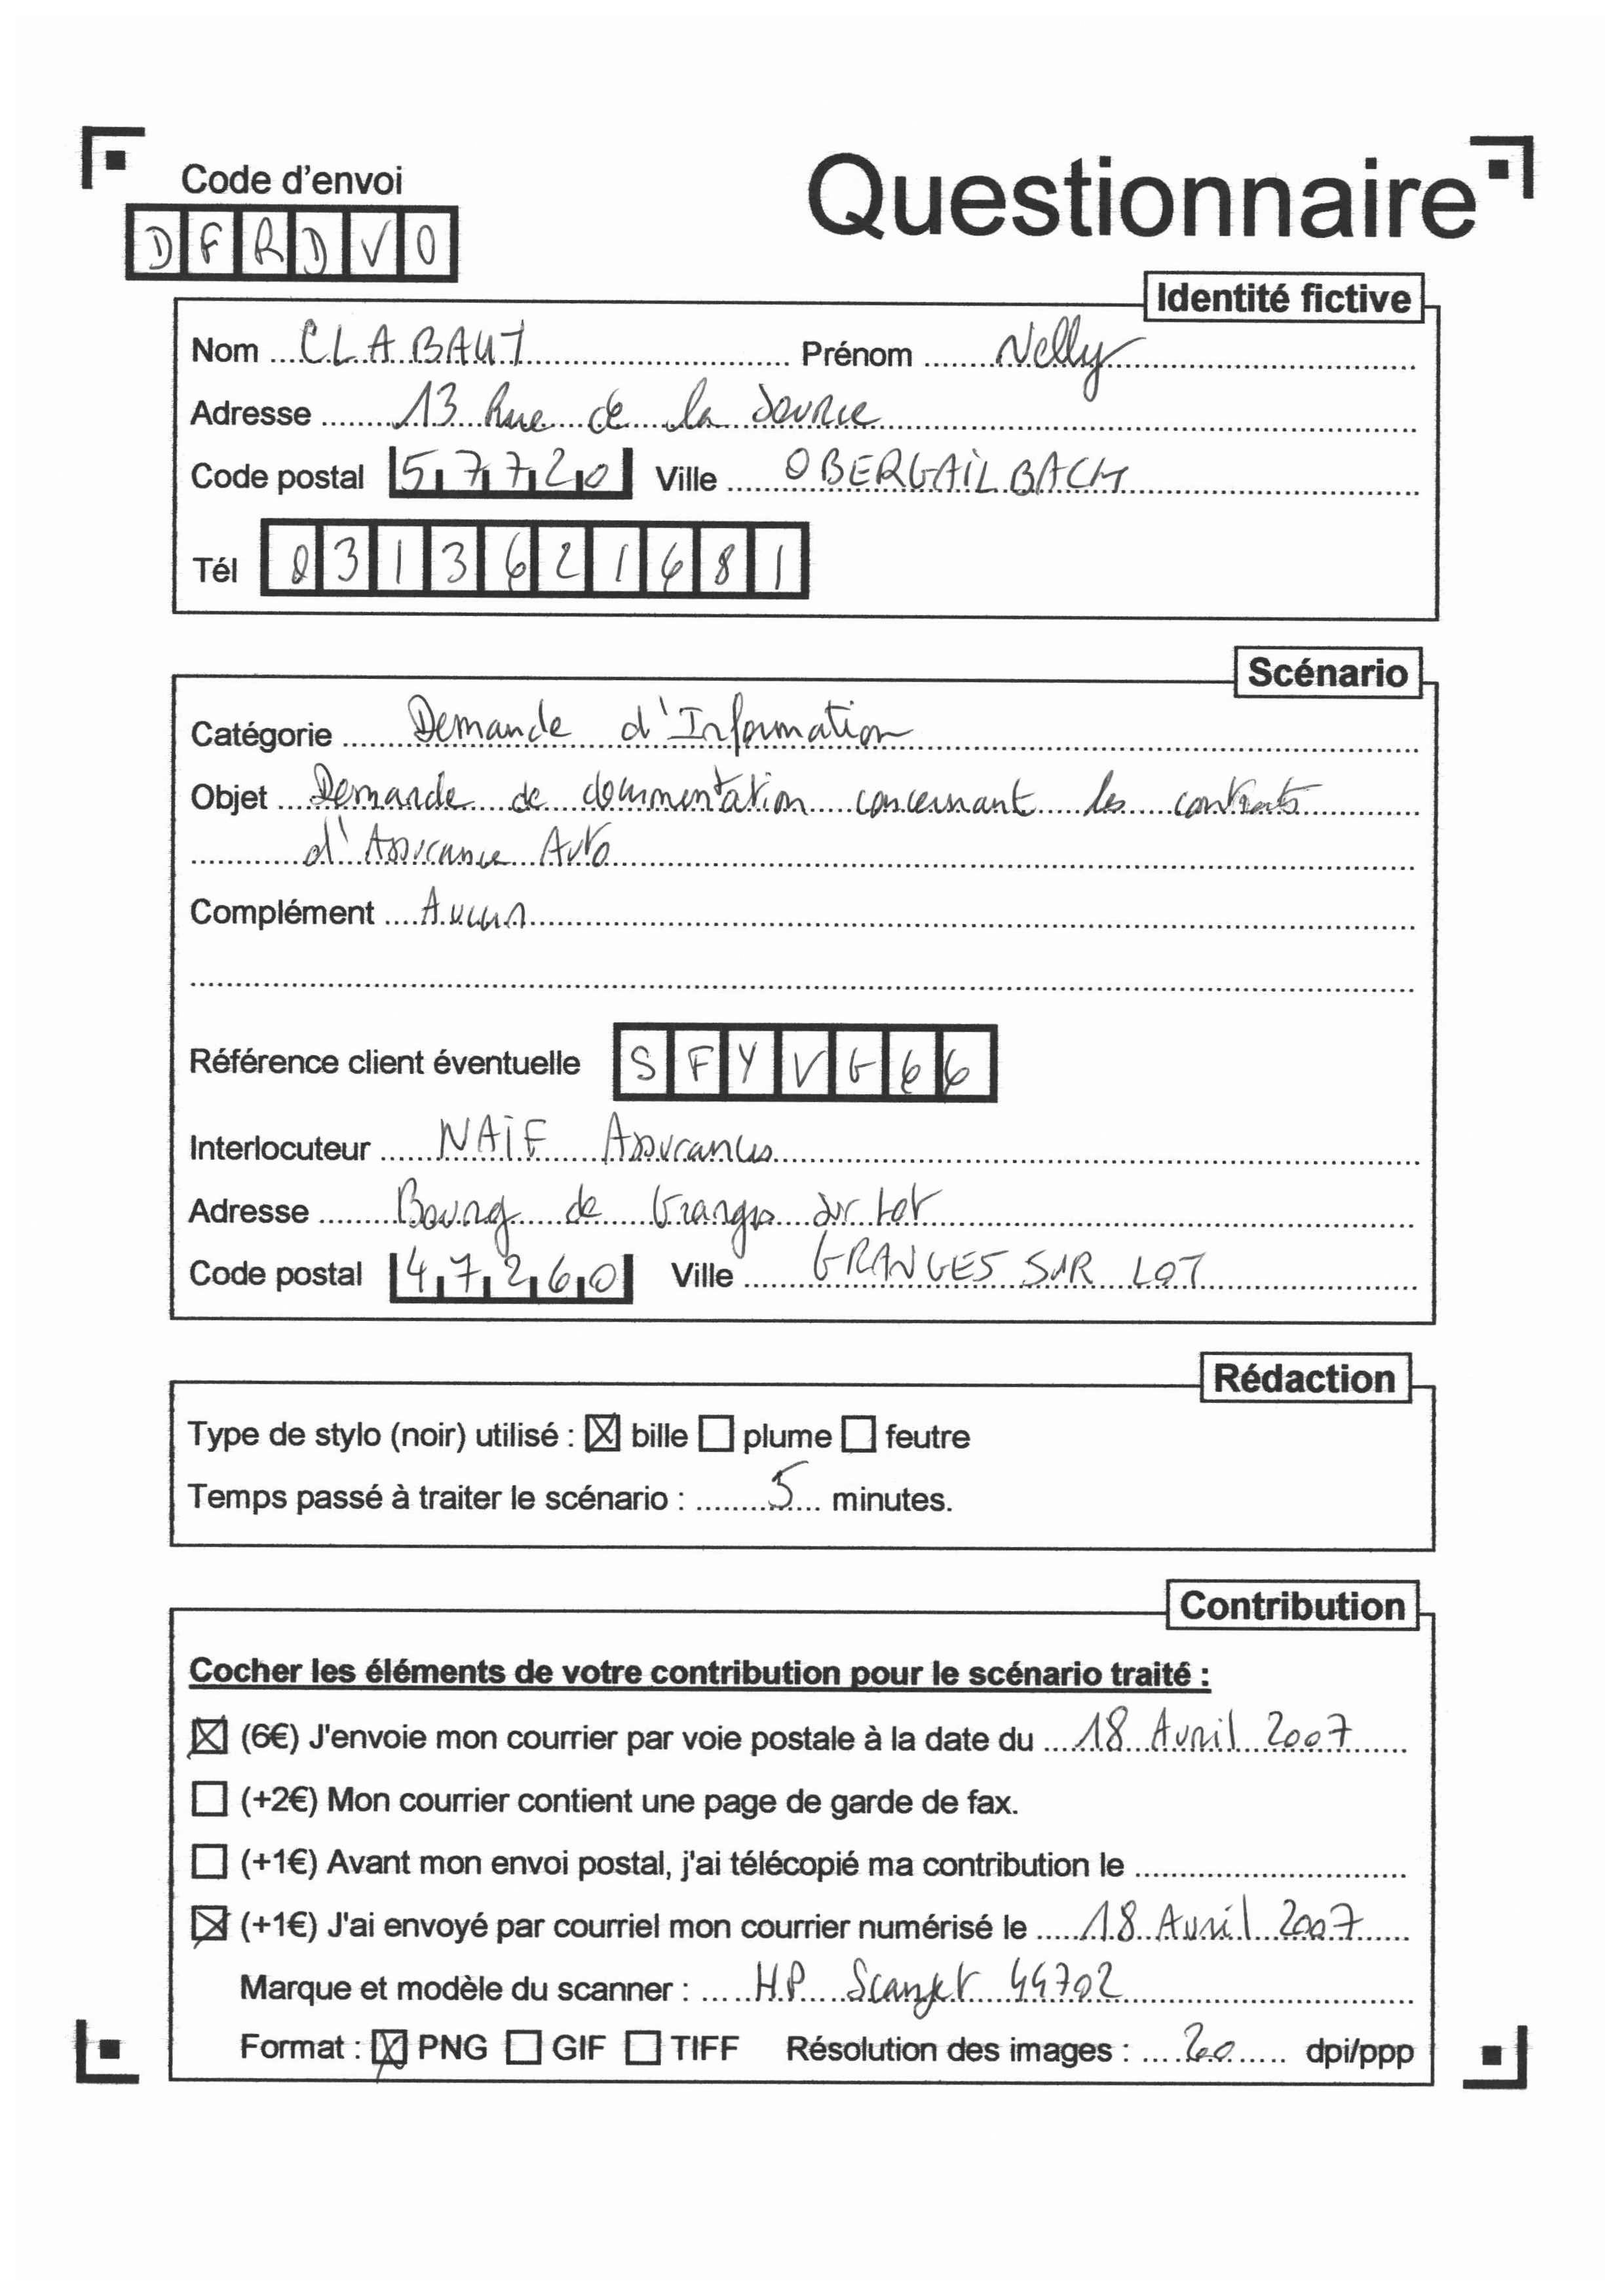 Code d'envoi
Questionnaire
DFRDVO
Identité fictive
Nom CLABAUT Prénom Nelly
Adresse 13 Rue de la Source
Code postal 57720 Ville OBERGAILBACH
Tél 0313621681
Scénario
Catégorie Demande d'Information
Objet Demande de documentation concernant les contrats
d'Assurance Auto
Complément Aucun
Référence client éventuelle SFYVG66
Interlocuteur NAIF Assurances
Adresse Bourg de Granges sur Lot
Code postal 47260 Ville GRANGES SUR LOT
Rédaction
Type de stylo (noir) utilisé : ☒ bille ☐ plume ☐ feutre
Temps passé à traiter le scénario : 5 minutes.
Contribution
Cocher les éléments de votre contribution pour le scénario traité :
☒ (6€) J'envoie mon courrier par voie postale à la date du 18 Avril 2007
☐ (+2€) Mon courrier contient une page de garde de fax.
☐ (+1€) Avant mon envoi postal, j'ai télécopié ma contribution le
☒ (+1€) J'ai envoyé par courriel mon courrier numérisé le 18 Avril 2007
Marque et modèle du scanner : HP Scanjet 44702
Format : ☒ PNG ☐ GIF ☐ TIFF Résolution des images : dpi/ppp